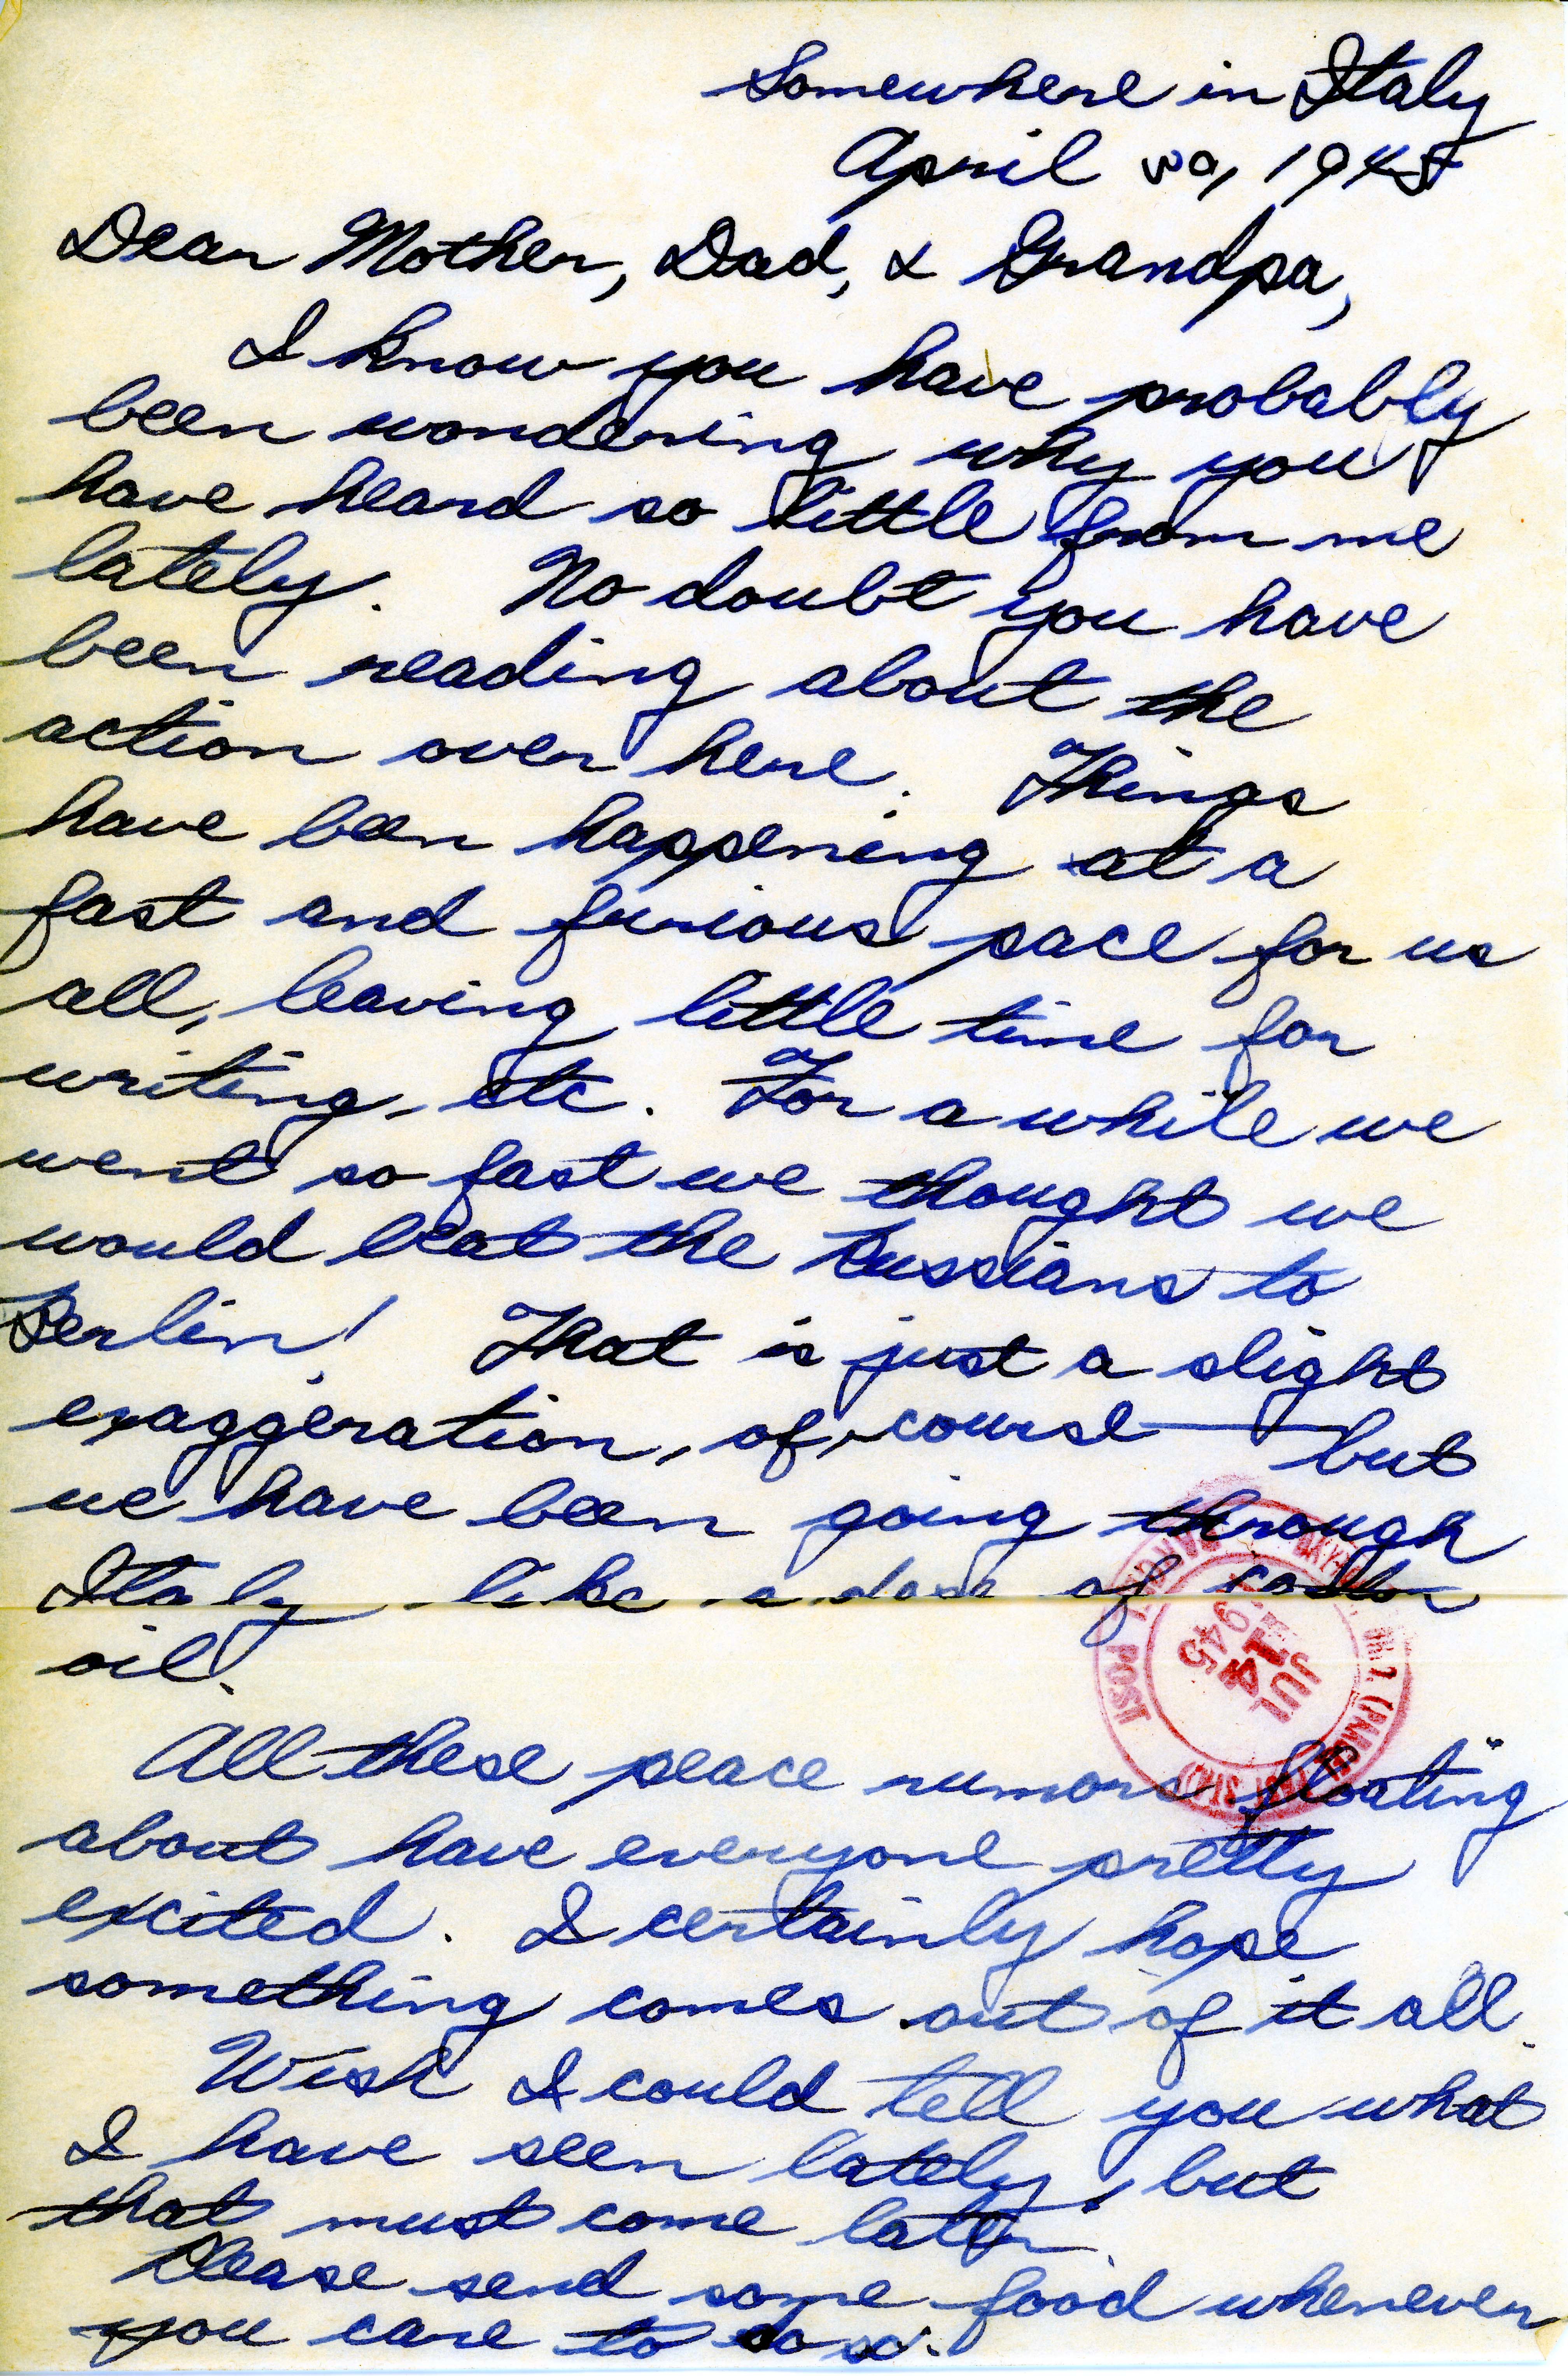 Somewhere in Italy
April 30, 1945
Dear Mother, Dad, & Grandpa,
I know you have probably
been wondering why you
have heard so little from me
lately. No doubt you have
been reading about the
action over here. Things
have been happening at a
fast and furious pace for us
all, leaving little time for
writing, etc. For a while we
went so fast we thought we
would beat the Russians to
Berlin! That is just a slight
exaggeration, of course — but
we have been going through
Italy like a dose of castor
oil.
POST
JUL
14
1945
All these peace rumors floating
about have everyone pretty
excited. I certainly hope
something comes out of it all.
Wish I could tell you what
I have seen lately, but
that must come later.
Please send some food whenever
you care to do so.